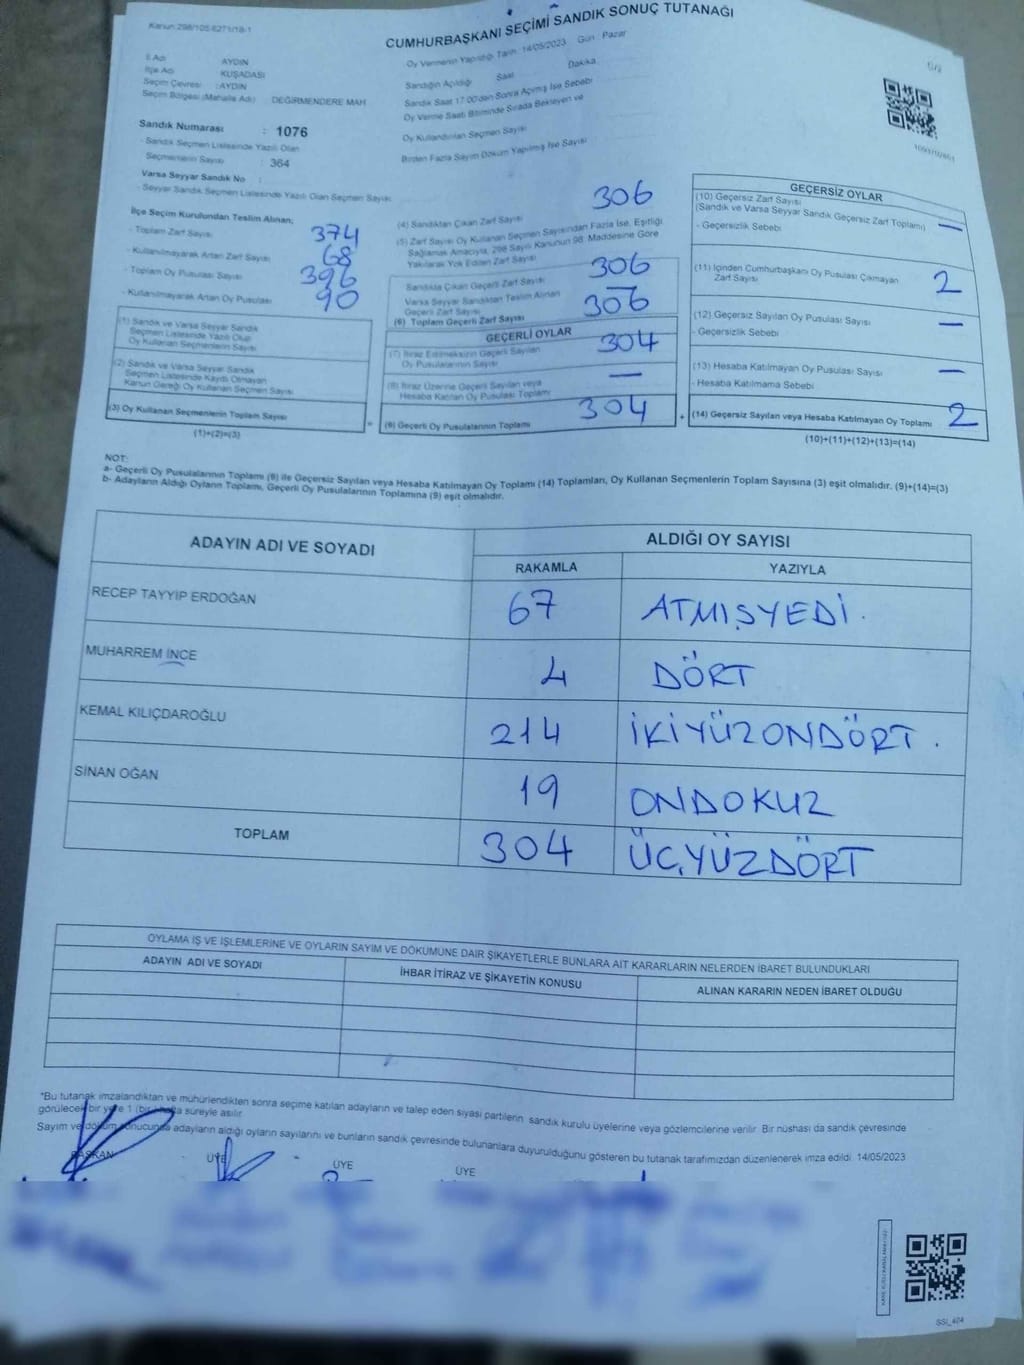 Kanun:298/105-6271/18-1
CUMHURBAŞKANI SEÇİMİ SANDIK SONUÇ TUTANAĞI
Oy Vermenin Yapıldığı Tarih: 14/05/2023 Gün : Pazar
İl Adı AYDIN
İlçe Adı KUŞADASI
Seçim Çevresi : AYDIN
Seçim Bölgesi (Mahalle Adı) DEĞİRMENDERE MAH
Sandığın Açıldığı Saat Dakika
Sandık Saat 17.00'den Sonra Açılmış İse Sebebi
Oy Verme Saati Bitiminde Sırada Bekleyen ve
Oy Kullandırılan Seçmen Sayısı
Birden Fazla Sayım Döküm Yapılmış İse Sayısı
Sandık Numarası : 1076
- Sandık Seçmen Listesinde Yazılı Olan
Seçmenlerin Sayısı : 364
Varsa Seyyar Sandık No :
- Seyyar Sandık Seçmen Listesinde Yazılı Olan Seçmen Sayısı
İlçe Seçim Kurulundan Teslim Alınan;
- Toplam Zarf Sayısı 374
- Kullanılmayarak Artan Zarf Sayısı 68
- Toplam Oy Pusulası Sayısı 396
- Kullanılmayarak Artan Oy Pusulası 90
(1) Sandık ve Varsa Seyyar Sandık
Seçmen Listesinde Yazılı Olup
Oy Kullanan Seçmenlerin Sayısı
(2) Sandık ve Varsa Seyyar Sandık
Seçmen Listesinde Kaydı Olmayan
Kanun Gereği Oy Kullanan Seçmen Sayısı
(3) Oy Kullanan Seçmenlerin Toplam Sayısı
(1)+(2)=(3)
(4) Sandıktan Çıkan Zarf Sayısı 306
(5) Zarf Sayısı Oy Kullanan Seçmen Sayısından Fazla İse, Eşitliği
Sağlamak Amacıyla, 298 Sayılı Kanunun 98. Maddesine Göre
Yakılarak Yok Edilen Zarf Sayısı
Sandıkta Çıkan Geçerli Zarf Sayısı 306
Varsa Seyyar Sandıktan Teslim Alınan
Geçerli Zarf Sayısı
(6) Toplam Geçerli Zarf Sayısı 306
GEÇERLİ OYLAR
(7) İtiraz Edilmeksizin Geçerli Sayılan
Oy Pusulalarının Sayısı 304
(8) İtiraz Üzerine Geçerli Sayılan veya
Hesaba Katılan Oy Pusulası Toplamı —
= (9) Geçerli Oy Pusulalarının Toplamı 304
GEÇERSİZ OYLAR
(10) Geçersiz Zarf Sayısı
(Sandık ve Varsa Seyyar Sandık Geçersiz Zarf Toplamı) —
- Geçersizlik Sebebi
(11) İçinden Cumhurbaşkanı Oy Pusulası Çıkmayan
Zarf Sayısı 2
(12) Geçersiz Sayılan Oy Pusulası Sayısı —
- Geçersizlik Sebebi
(13) Hesaba Katılmayan Oy Pusulası Sayısı —
- Hesaba Katılmama Sebebi
+ (14) Geçersiz Sayılan veya Hesaba Katılmayan Oy Toplamı 2
(10)+(11)+(12)+(13)=(14)
NOT:
a- Geçerli Oy Pusulalarının Toplamı (9) ile Geçersiz Sayılan veya Hesaba Katılmayan Oy Toplamı (14) Toplamları, Oy Kullanan Seçmenlerin Toplam Sayısına (3) eşit olmalıdır. (9)+(14)=(3)
b- Adayların Aldığı Oyların Toplamı, Geçerli Oy Pusulalarının Toplamına (9) eşit olmalıdır.
ADAYIN ADI VE SOYADI ALDIĞI OY SAYISI
RAKAMLA YAZIYLA
RECEP TAYYİP ERDOĞAN 67 ATMIŞYEDİ.
MUHARREM İNCE 4 DÖRT
KEMAL KILIÇDAROĞLU 214 İKİYÜZONDÖRT.
SİNAN OĞAN 19 ONDOKUZ
TOPLAM 304 ÜÇYÜZDÖRT
OYLAMA İŞ VE İŞLEMLERİNE VE OYLARIN SAYIM VE DÖKÜMÜNE DAİR ŞİKAYETLERLE BUNLARA AİT KARARLARIN NELERDEN İBARET BULUNDUKLARI
ADAYIN ADI VE SOYADI İHBAR İTİRAZ VE ŞİKAYETİN KONUSU ALINAN KARARIN NEDEN İBARET OLDUĞU
*Bu tutanak imzalandıktan ve mühürlendikten sonra seçime katılan adayların ve talep eden siyasi partilerin sandık kurulu üyelerine veya gözlemcilerine verilir. Bir nüshası da sandık çevresinde
görülecek bir yere 1 (bir) hafta süreyle asılır.
Sayım ve döküm sonucunda adayların aldığı oyların sayılarını ve bunların sandık çevresinde bulunanlara duyurulduğunu gösteren bu tutanak tarafımızdan düzenlenerek imza edildi. 14/05/2023
BAŞKAN ÜYE ÜYE ÜYE
SSI_404